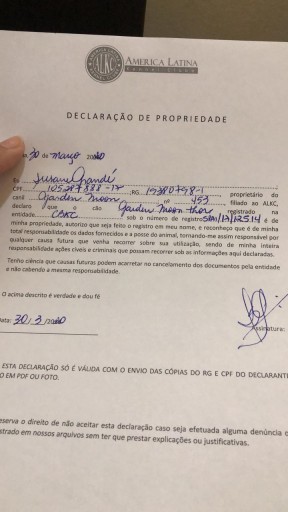 ALKC
AMERICA LATINA
KENNEL CLUBE
DECLARAÇÃO DE PROPRIEDADE
30 de março 20
Eu
CPF: RG 19380798-1 proprietário do
canil Garden Moon nº 453, filiado ao ALKC,
declaro que o cão Garden Moon Thor registrado na
entidade CBKC sob o número de registro é de
minha propriedade, autorizo que seja feito o registro em meu nome, e reconheço que é de minha
total responsabilidade os dados fornecidos e a posse do animal, tornando-me assim responsável por
qualquer causa futura que venha recorrer sobre sua utilização, sendo de minha inteira
responsabilidade ações cíveis e criminais que possam recorrer sob as informações aqui declaradas.
Tenho ciência que causas futuras podem acarretar no cancelamento dos documentos pela entidade
e não cabendo a mesma responsabilidade.
O acima descrito é verdade e dou fé
Data: 30/3/20
Assinatura:
ESTA DECLARAÇÃO SÓ É VÁLIDA COM O ENVIO DAS CÓPIAS DO RG E CPF DO DECLARANT
O EM PDF OU FOTO.
eserva o direito de não aceitar esta declaração caso seja efetuada alguma denúncia o
strado em nossos arquivos sem ter que prestar explicações ou justificativas.